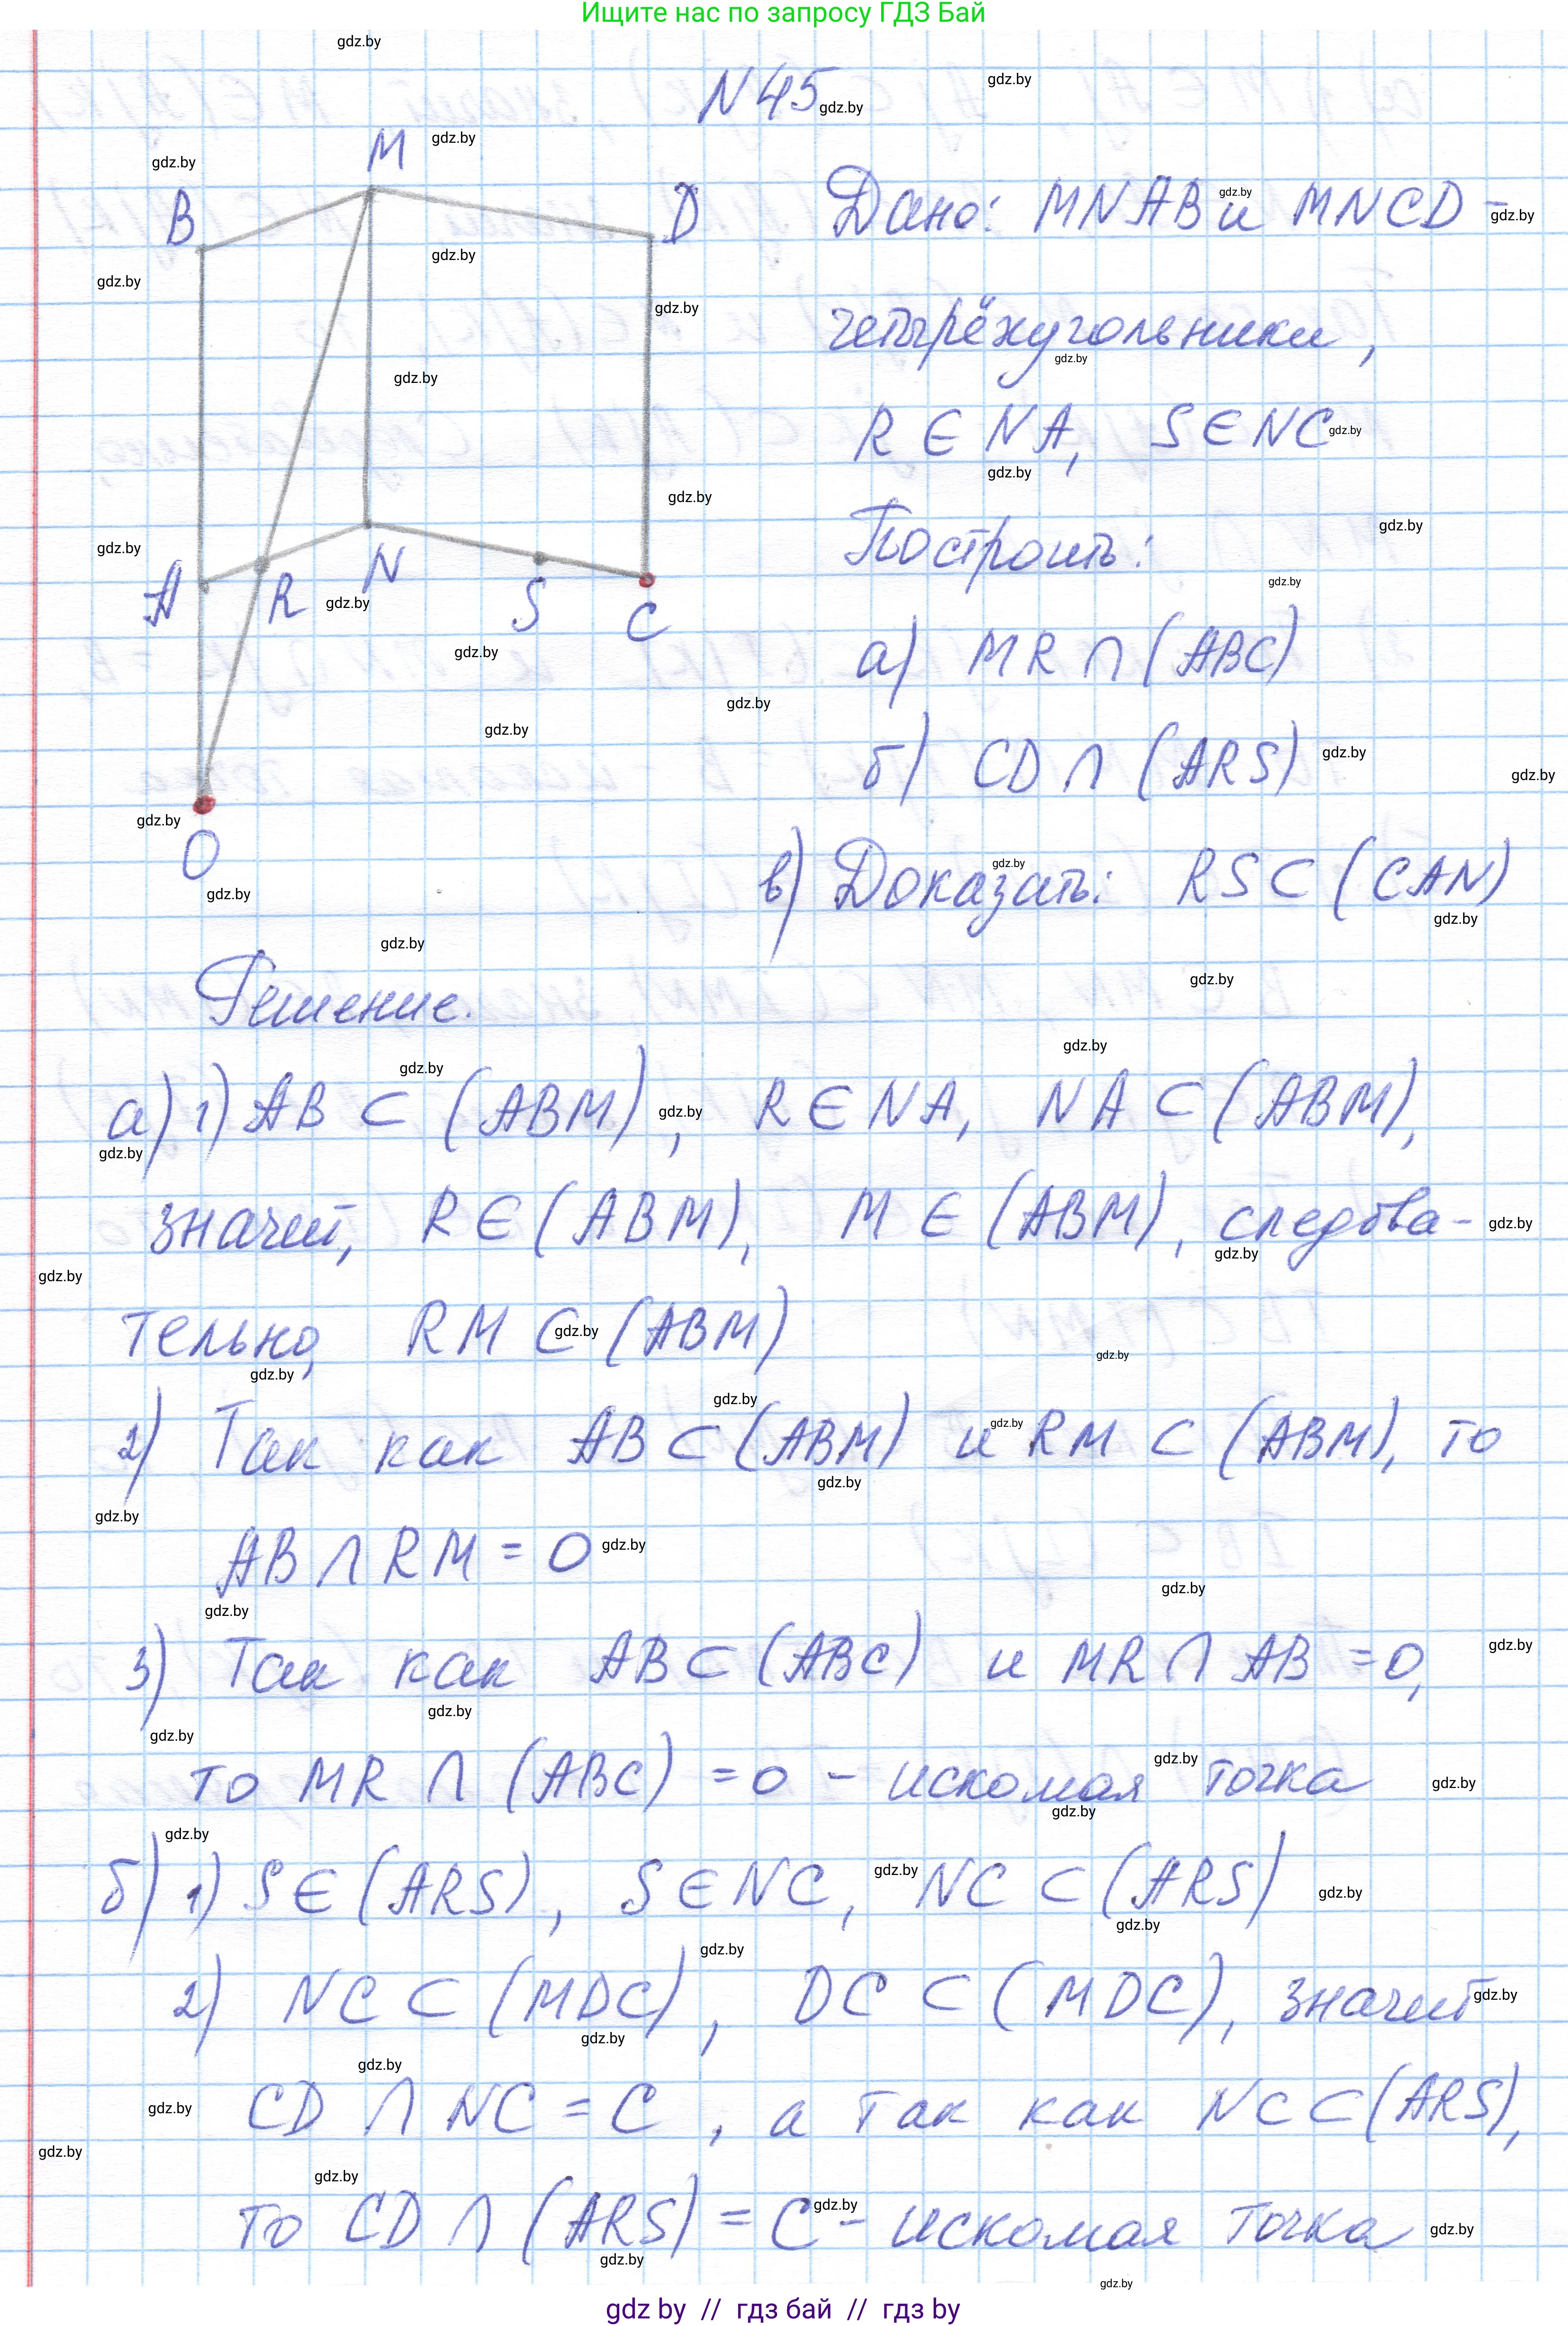 Ищите нас по запросу ГДЗ Бай
N45
M
B
D
A
R
N
S
C
O
Дано: MNAB и MNCD -
четырёхугольники,
R ∈ NA, S ∈ NC
Построить:
а) MR ∩ (ABC)
б) CD ∩ (ARS)
в) Доказать: RS ⊂ (CAN)
Решение.
а) 1) AB ⊂ (ABM), R ∈ NA, NA ⊂ (ABM),
значит, R ∈ (ABM), M ∈ (ABM), следова-
тельно, RM ⊂ (ABM)
2) Так как AB ⊂ (ABM) и RM ⊂ (ABM), то
AB ∩ RM = O
3) Так как AB ⊂ (ABC) и MR ∩ AB = O,
то MR ∩ (ABC) = O - искомая точка
б) 1) S ∈ (ARS), S ∈ NC, NC ⊂ (ARS)
2) NC ⊂ (MDC), DC ⊂ (MDC), значит
CD ∩ NC = C, а так как NC ⊂ (ARS),
то CD ∩ (ARS) = C - искомая точка
gdz by // гдз бай // гдз by